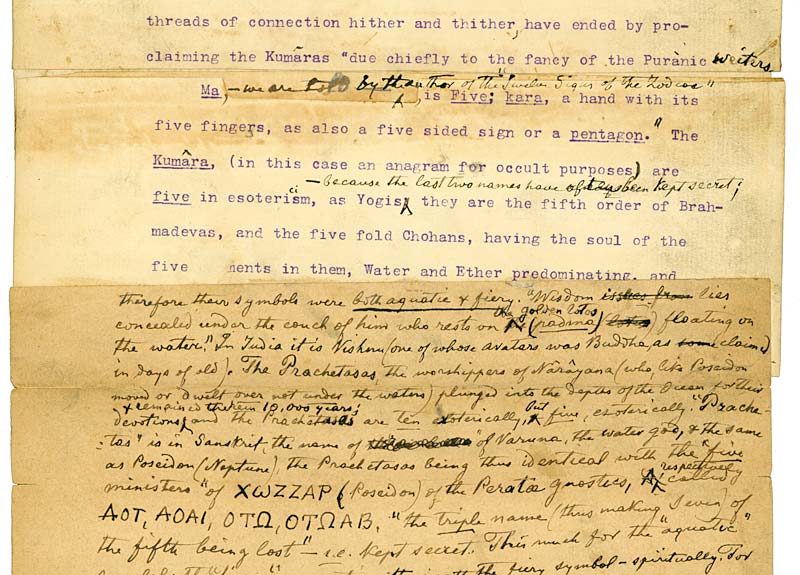 threads of connection hither and thither, have ended by pro-
claiming the Kumâras "due chiefly to the fancy of the Purânic writers
Ma, – we are told by the author of the "Twelve Signs of the Zodiac"
is Five; kara, a hand with its
five fingers, as also a five sided sign or a pentagon." The
Kumâra, (in this case an anagram for occult purposes) are
– because the last two names have always been kept secret;
five in esoteriism, as Yogis, they are the fifth order of Brah-
madevas, and the five fold Chohans, having the soul of the
five ments in them, Water and Ether predominating, and
therefore their symbols were both aquatic & fiery. "Wisdom lies
the golden lotos
concealed under the couch of him who rests on (padma) (lotus) floating on
the water." In India it is Vishnu (one of whose avatars was Buddha, as some claimed
in days of old). The Prachetasas, the worshippers of Nârâyana (who, like Poseidon
moved or dwelt over not under the waters) plunged into the depths of the Ocean for their
& remained therein 10,000 years;
devotions, and the Prachetasas are ten exoterically, but five, esoterically. "Prache-
tas" is in Sanskrit, the name of of Varuna, the water god, & the same
as Poseidon (Neptune), the Prachetasas being thus identical with the "five
respectively
ministers" of ΧΩΖΖΑΡ (Poseidon) of the Peratæ gnostics, called
ΑΟΤ, ΑΟΑΙ, ΟΤΩ, ΟΤΩΑΒ, "the triple name (thus making seven) of
the fifth being lost" – i.e. kept secret. This much for the "aquatic"
the fiery symbol – spiritually. For